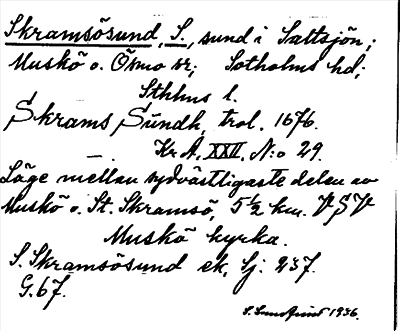 Skramsösund, S., sund i Saltsjön;
Muskö o. Ösmo sr; Sotholms hd;
Sthlms l.
Skrams Sundh, trol. 1676.
Kr A, XXII, N:o 29.
Läge mellan sydvästligaste delen av
Muskö o. St. Skramsö, 5 1/2 km. VSV
Muskö kyrka.
S. Skramsösund ek, Sj: 237.
G. 67.
1936.